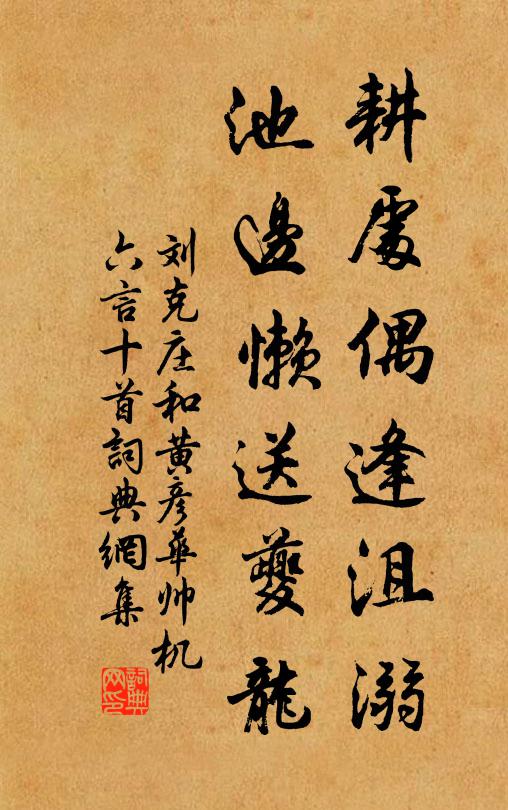 耕處偶逢沮溺
池邊懶送夔龍
刘克庄和黄彦華帅机
六言十首詞典網集
詞典网印